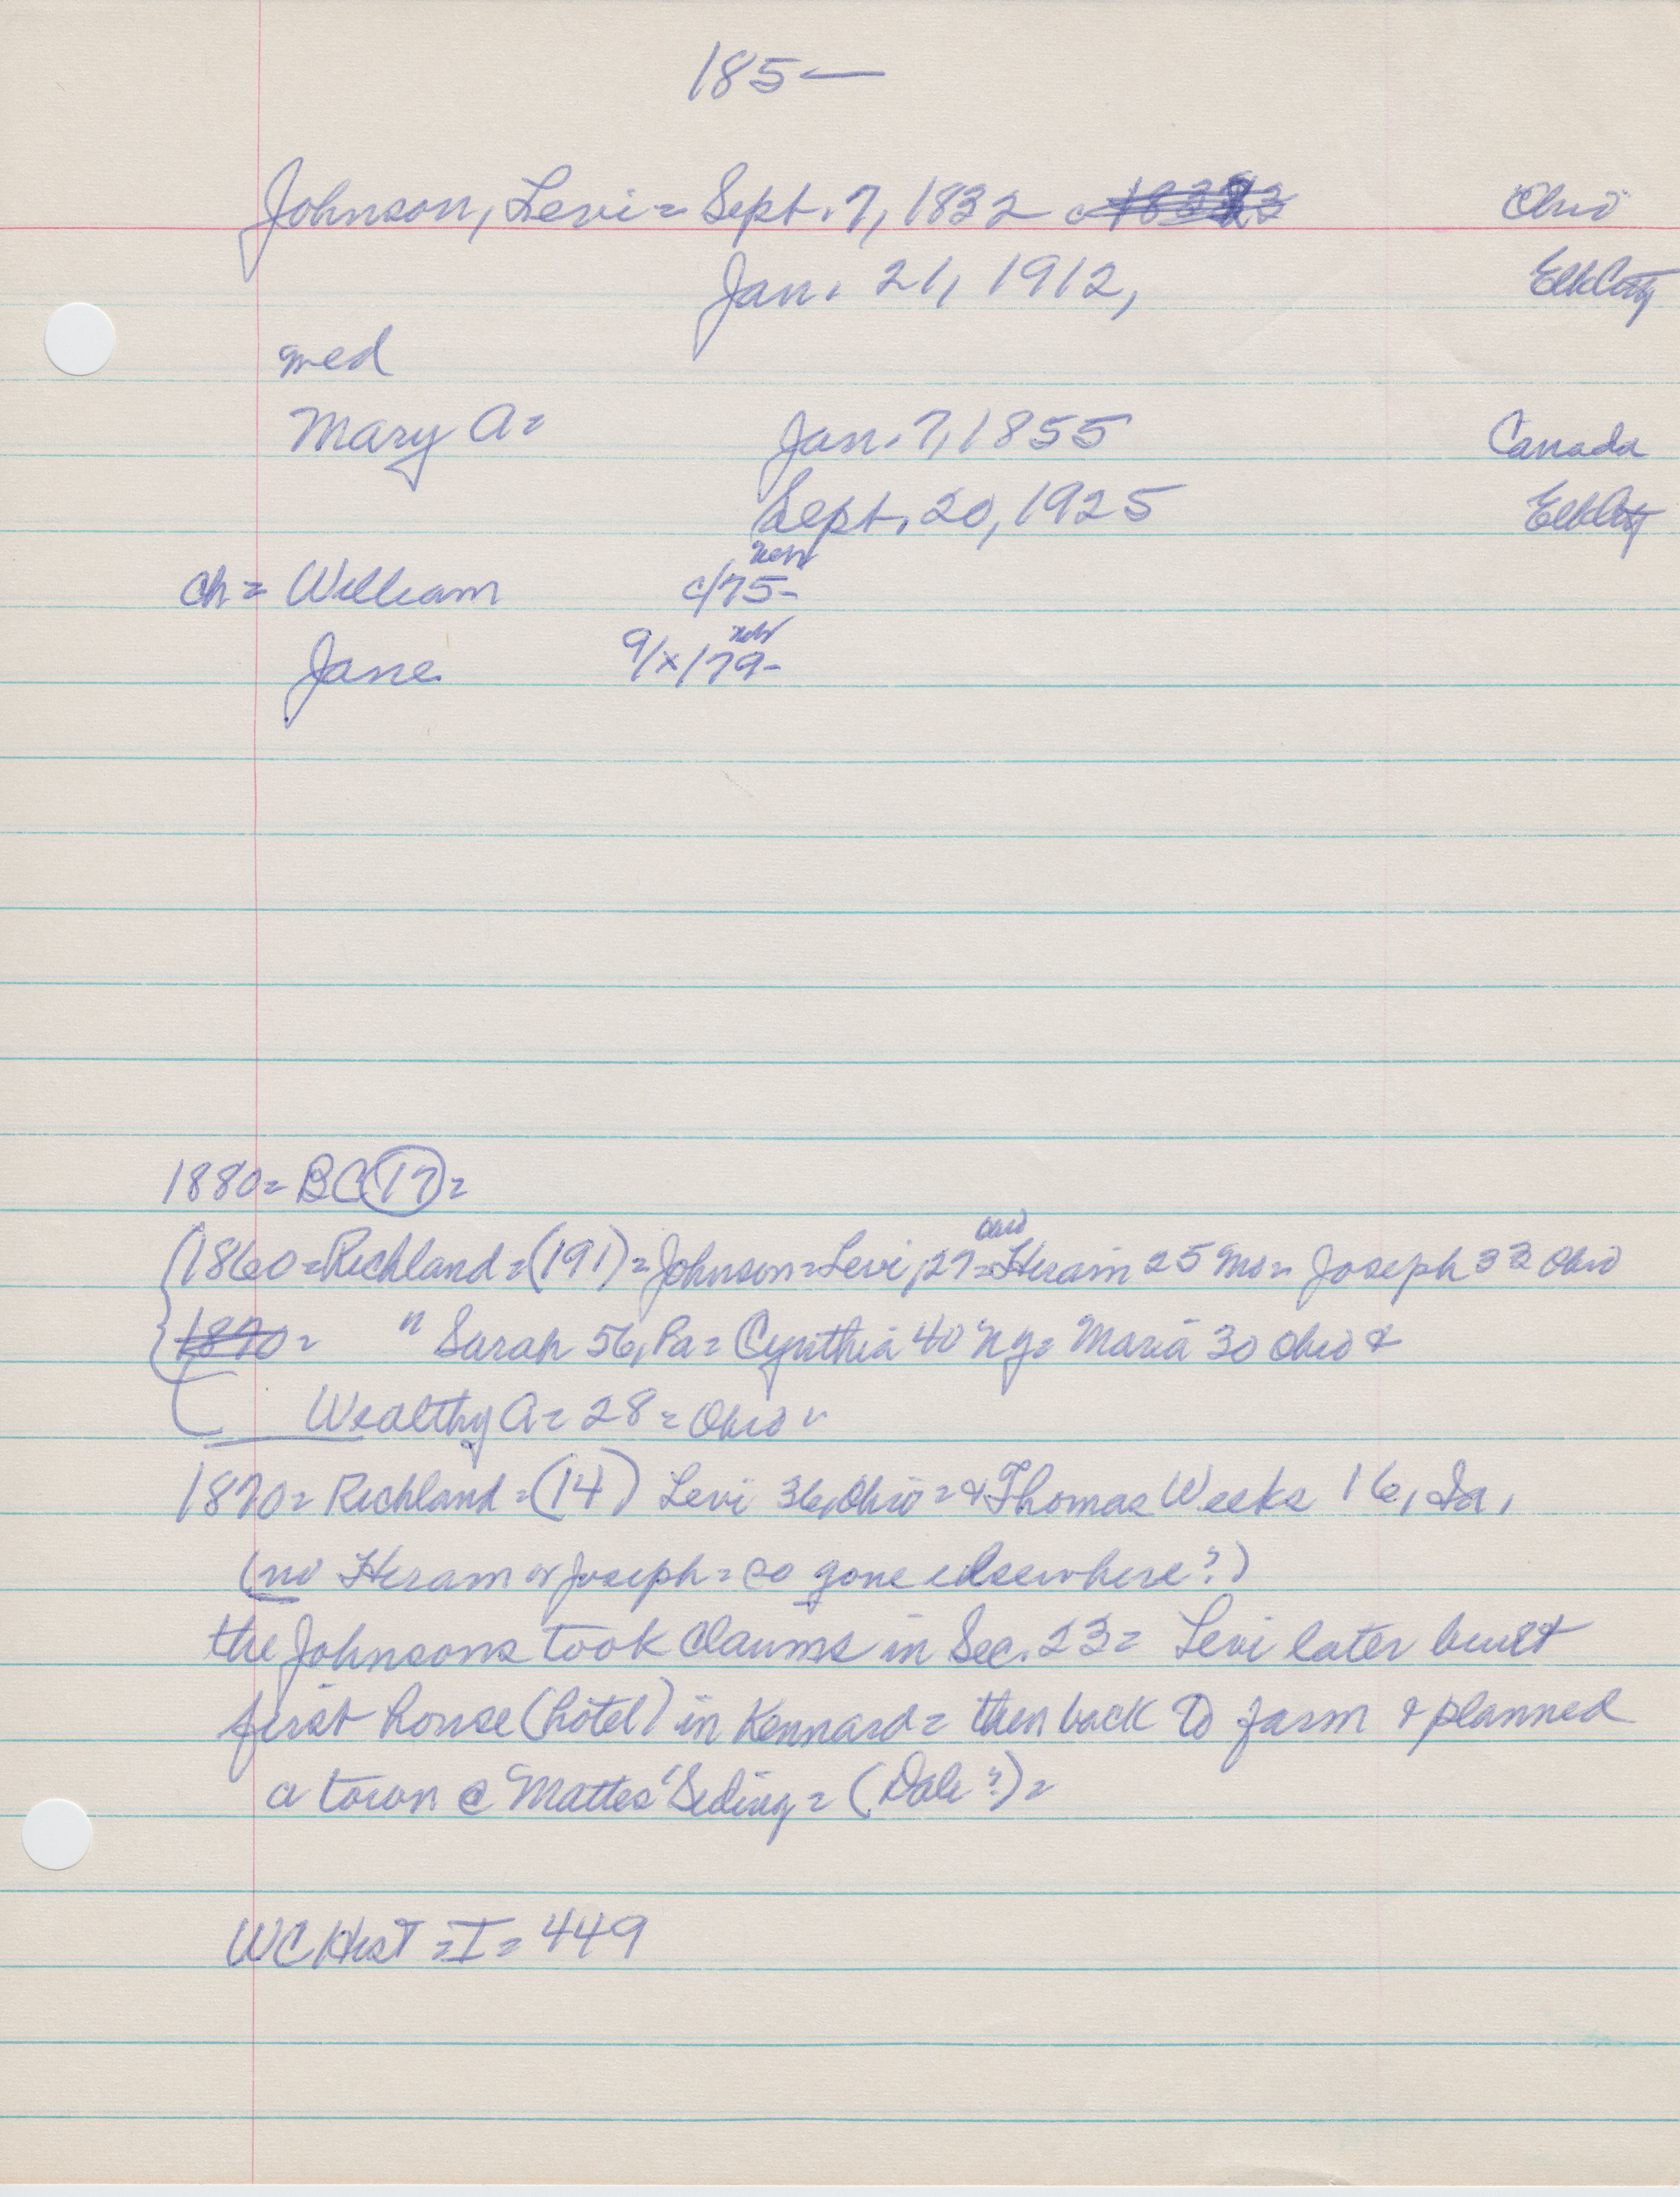 185—
Johnson, Levi = Sept. 7, 1832 Ohio
Jan. 21, 1912, Elk City
med
Mary A = Jan. 7, 1855 Canada
Sept. 20, 1925 Elk City
Neb
ch = William c/75-
Neb
Jane 9/x/79-
1880 = BC (17) =
Ohio
(1860 = Richland = (191) = Johnson = Levi, 27 = Hiram 25 Mo = Joseph 33 Ohio
1870 = " Sarah 56, Pa = Cynthia 40 NY = Maria 30 Ohio &
Wealthy A = 28 = Ohio
1870 = Richland = (14) Levi 36, Ohio = & Thomas Weeks 16, Ia,
(no Hiram or Joseph = so gone elsewhere?)
the Johnsons took claims in Sec. 23 = Levi later built
first house (hotel) in Kennard = then back to farm & planned
a town @ Mattes' Siding = (Dale?) =
WC Hist = I = 449